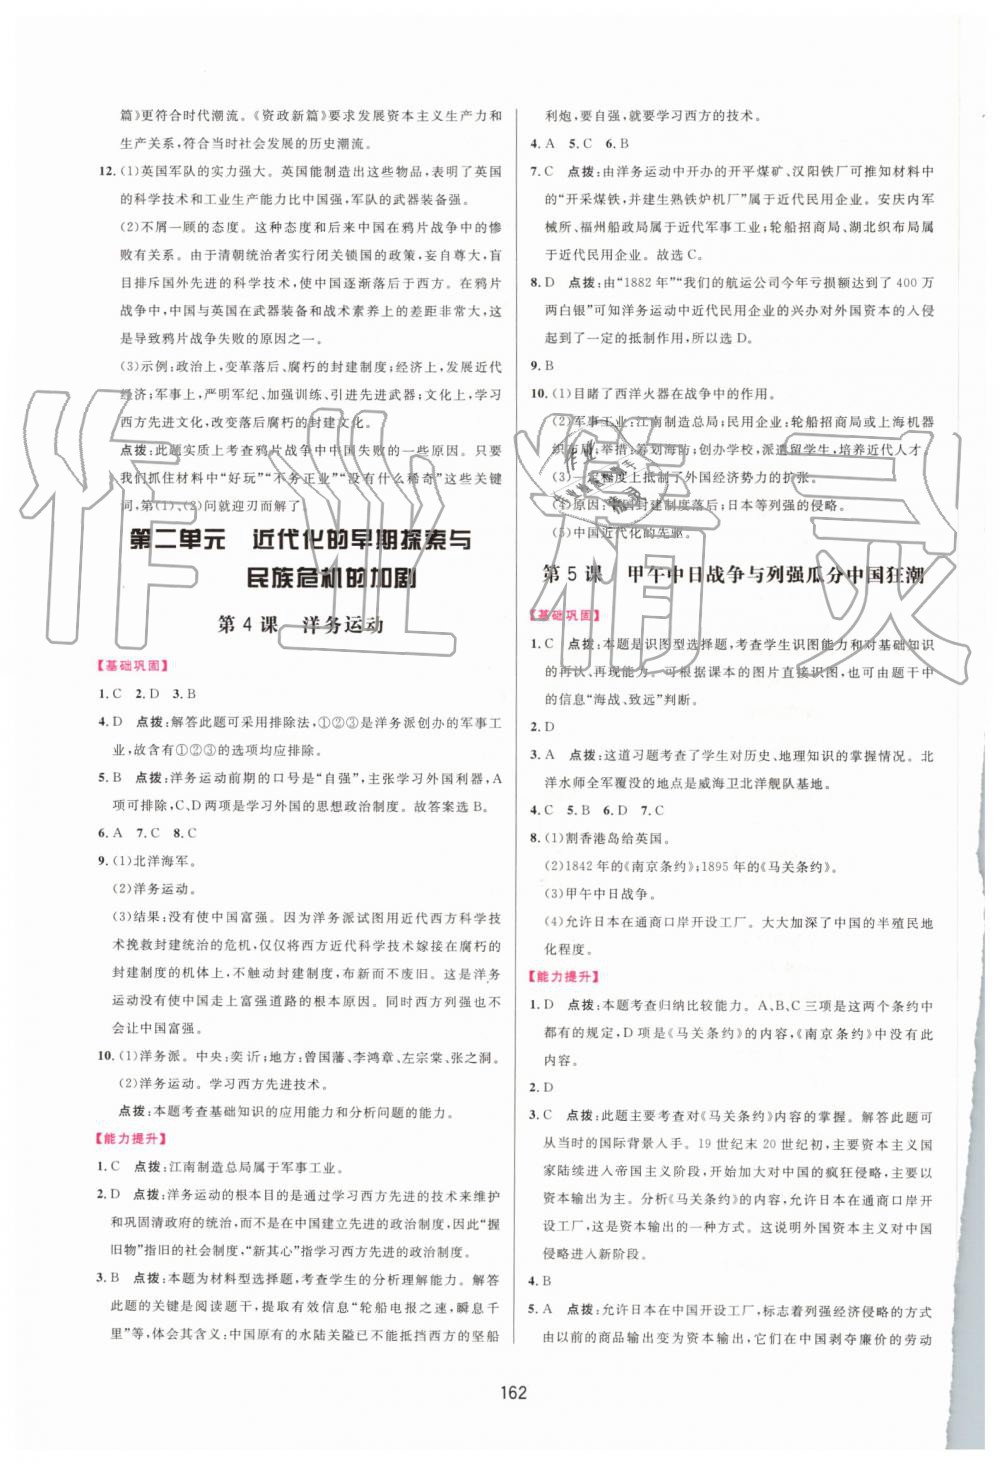 篇》更符合时代潮流。《资政新篇》要求发展资本主义生产力和
生产关系,符合当时社会发展的历史潮流。
12.(1)英国军队的实力强大。英国能制造出这些物品,表明英国
的科学技术和工业生产能力比中国强,军队的武器装备强。
(2)不屑一顾的态度。这种态度和后来中国在鸦片战争中的惨
败有关系。由于清朝统治者实行闭关锁国的政策,妄自尊大,盲
目排斥国外先进的科学技术,使中国逐渐落后于西方。在鸦片
战争中,中国与英国在武器装备和战术素养上的差距非常大,
这是导致鸦片战争失败的原因之一。
(3)示例:政治上,变革落后、腐朽的封建制度;经济上,发展近代
经济;军事上,严明军纪、加强训练、引进先进武器;文化上,学习
西方先进文化,改变落后腐朽的封建文化。
点拨:此题实质上考查鸦片战争中中国失败的一些原因。只要
我们抓住材料中“好玩”“不务正业”“没有什么稀奇”这些关键
词,第(1)、(2)问就迎刃而解了。
第二单元 近代化的早期探索与
民族危机的加剧
第 4 课 洋务运动
【基础巩固】
1. C 2. D 3. B
4. D 点拨:解答此题可采用排除法,①②③是洋务派创办的军事工
业,故含有①②③的选项均应排除。
5. B 点拨:洋务运动前期的口号是“自强”,主张学习外国利器,A
项可排除,C、D两项是学习外国的思想政治制度。故答案选 B。
6. A 7. C 8. C
9. (1)北洋海军。
(2)洋务运动。
(3)结果:没有使中国富强。因为洋务派试图用近代西方科学技
术挽救封建统治的危机,仅仅将西方近代科学技术嫁接在腐朽的
封建制度的机体上,不触动封建制度,布新而不废旧。这是洋务
运动没有使中国走上富强道路的根本原因。同时西方列强也不
会让中国富强。
10. (1)洋务派。中央:奕䜣;地方:曾国藩、李鸿章、左宗棠、张之洞。
(2)洋务运动。学习西方先进技术。
点拨:本题考查基础知识的应用能力和分析问题的能力。
【能力提升】
1. C 点拨:江南制造总局属于军事工业。
2. D 点拨:洋务运动的根本目的是通过学习西方先进的技术来维护
和巩固清政府的统治,而不是在中国建立先进的政治制度,因此“握
旧物”指旧的社会制度,“新其心”指学习西方先进的政治制度。
3. B 点拨:本题为材料型选择题,考查学生的分析理解能力。解答
此题的关键是阅读题干,提取有效信息“轮船电报之速,瞬息千
里”等,体会其含义:中国原有的水陆关隘已不能抵挡西方的坚船
利炮,要自强,就要先学习西方的技术。
4. A 5. C 6. B
7. C 点拨:由洋务运动中开办的开平煤矿、汉阳铁厂可推知材料中
的“开采煤铁,并建生熟铁炉机厂”属于近代民用企业。安庆内军
械所、福州船政局属于近代军事工业;轮船招商局、湖北织布局属
于近代民用企业。故选 C。
8. D 点拨:由“1882 年”“我们的航运公司今年亏损额达到了 400 万
两白银”可知洋务运动中近代民用企业的兴办对外国资本的入侵
起到了一定的抵制作用,所以选 D。
9. B
10. (1)目睹了西洋火器在战争中的作用。
(2)军事工业:江南制造总局;民用企业:轮船招商局或上海机器
织布局;举措:筹划海防;创办学校,派遣留学生,培养近代人才。
(3)一定程度上抵制了外国经济势力的扩张。
(4)原因:中国封建制度落后;日本等列强的侵略。
(5)中国近代化的先驱。
第 5 课 甲午中日战争与列强瓜分中国狂潮
【基础巩固】
1. C 点拨:本题是识图型选择题,考查学生识图能力和对基础知识
的再认、再现能力。可根据课本的图片直接识图,也可由题干中
的信息“海战、致远”判断。
2. D
3. A 点拨:这道习题考查了学生对历史、地理知识的掌握情况。北
洋水师全军覆没的地点是威海卫北洋舰队基地。
4. C 5. B 6. D 7. D
8. (1)割香港岛给英国。
(2)1842 年的《南京条约》;1895 年的《马关条约》。
(3)甲午中日战争。
(4)允许日本在通商口岸开设工厂。大大加深了中国的半殖民地
化程度。
【能力提升】
1. D 点拨:本题考查归纳比较能力。A、B、C 三项是这两个条约中
都有的规定,D 项是《马关条约》的内容,《南京条约》中没有此
内容。
2. D
3. C 点拨:此题主要考查对《马关条约》内容的掌握。解答此题可
从当时的国际背景入手。19 世纪末 20 世纪初,主要资本主义国
家陆续进入帝国主义阶段,开始加大对中国的疯狂侵略,主要以
资本输出为主。分析《马关条约》的内容,允许日本在通商口岸开
设工厂,这是资本输出的一种方式。这说明外国资本主义对中国
侵略进入新阶段。
4. B
5. A 点拨:允许日本在中国开设工厂,标志着列强经济侵略的方式
由以前的商品输出变为资本输出,它们在中国剥夺廉价的劳动
162
作业精灵